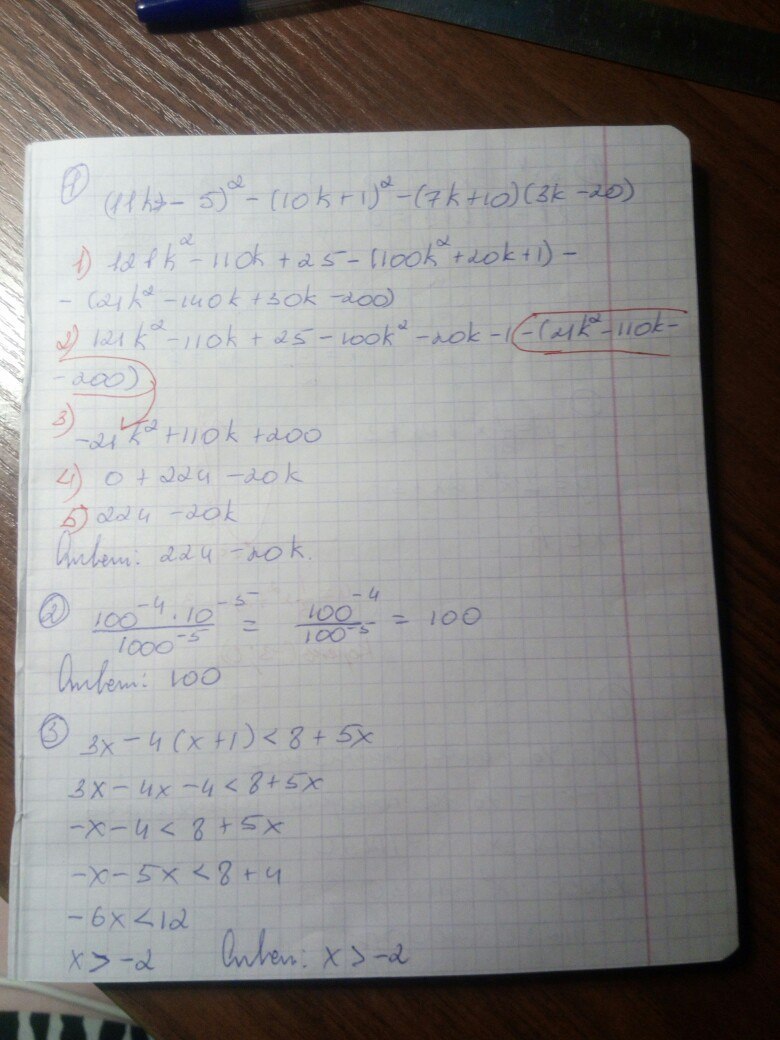 1 (11k - 5)² - (10k + 1)² - (7k + 10)(3k - 20)
1) 121k² - 110k + 25 - (100k² + 20k + 1) -
- (21k² - 140k + 30k - 200)
2) 121k² - 110k + 25 - 100k² - 20k - 1 - (21k² - 110k -
- 200)
3) -21k² + 110k + 200
4) 0 + 224 - 20k
5) 224 - 20k
Ответ: 224 - 20k.
2 100⁻⁴ · 10⁻⁵ / 1000⁻⁵ = 100⁻⁴ / 100⁻⁵ = 100
Ответ: 100
3 3x - 4(x + 1) < 8 + 5x
3x - 4x - 4 < 8 + 5x
-x - 4 < 8 + 5x
-x - 5x < 8 + 4
-6x < 12
x > -2 Ответ: x > -2